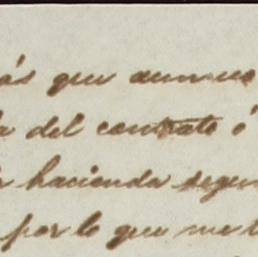 ás que aunque
del contrato ó
hacienda segun
por lo que me